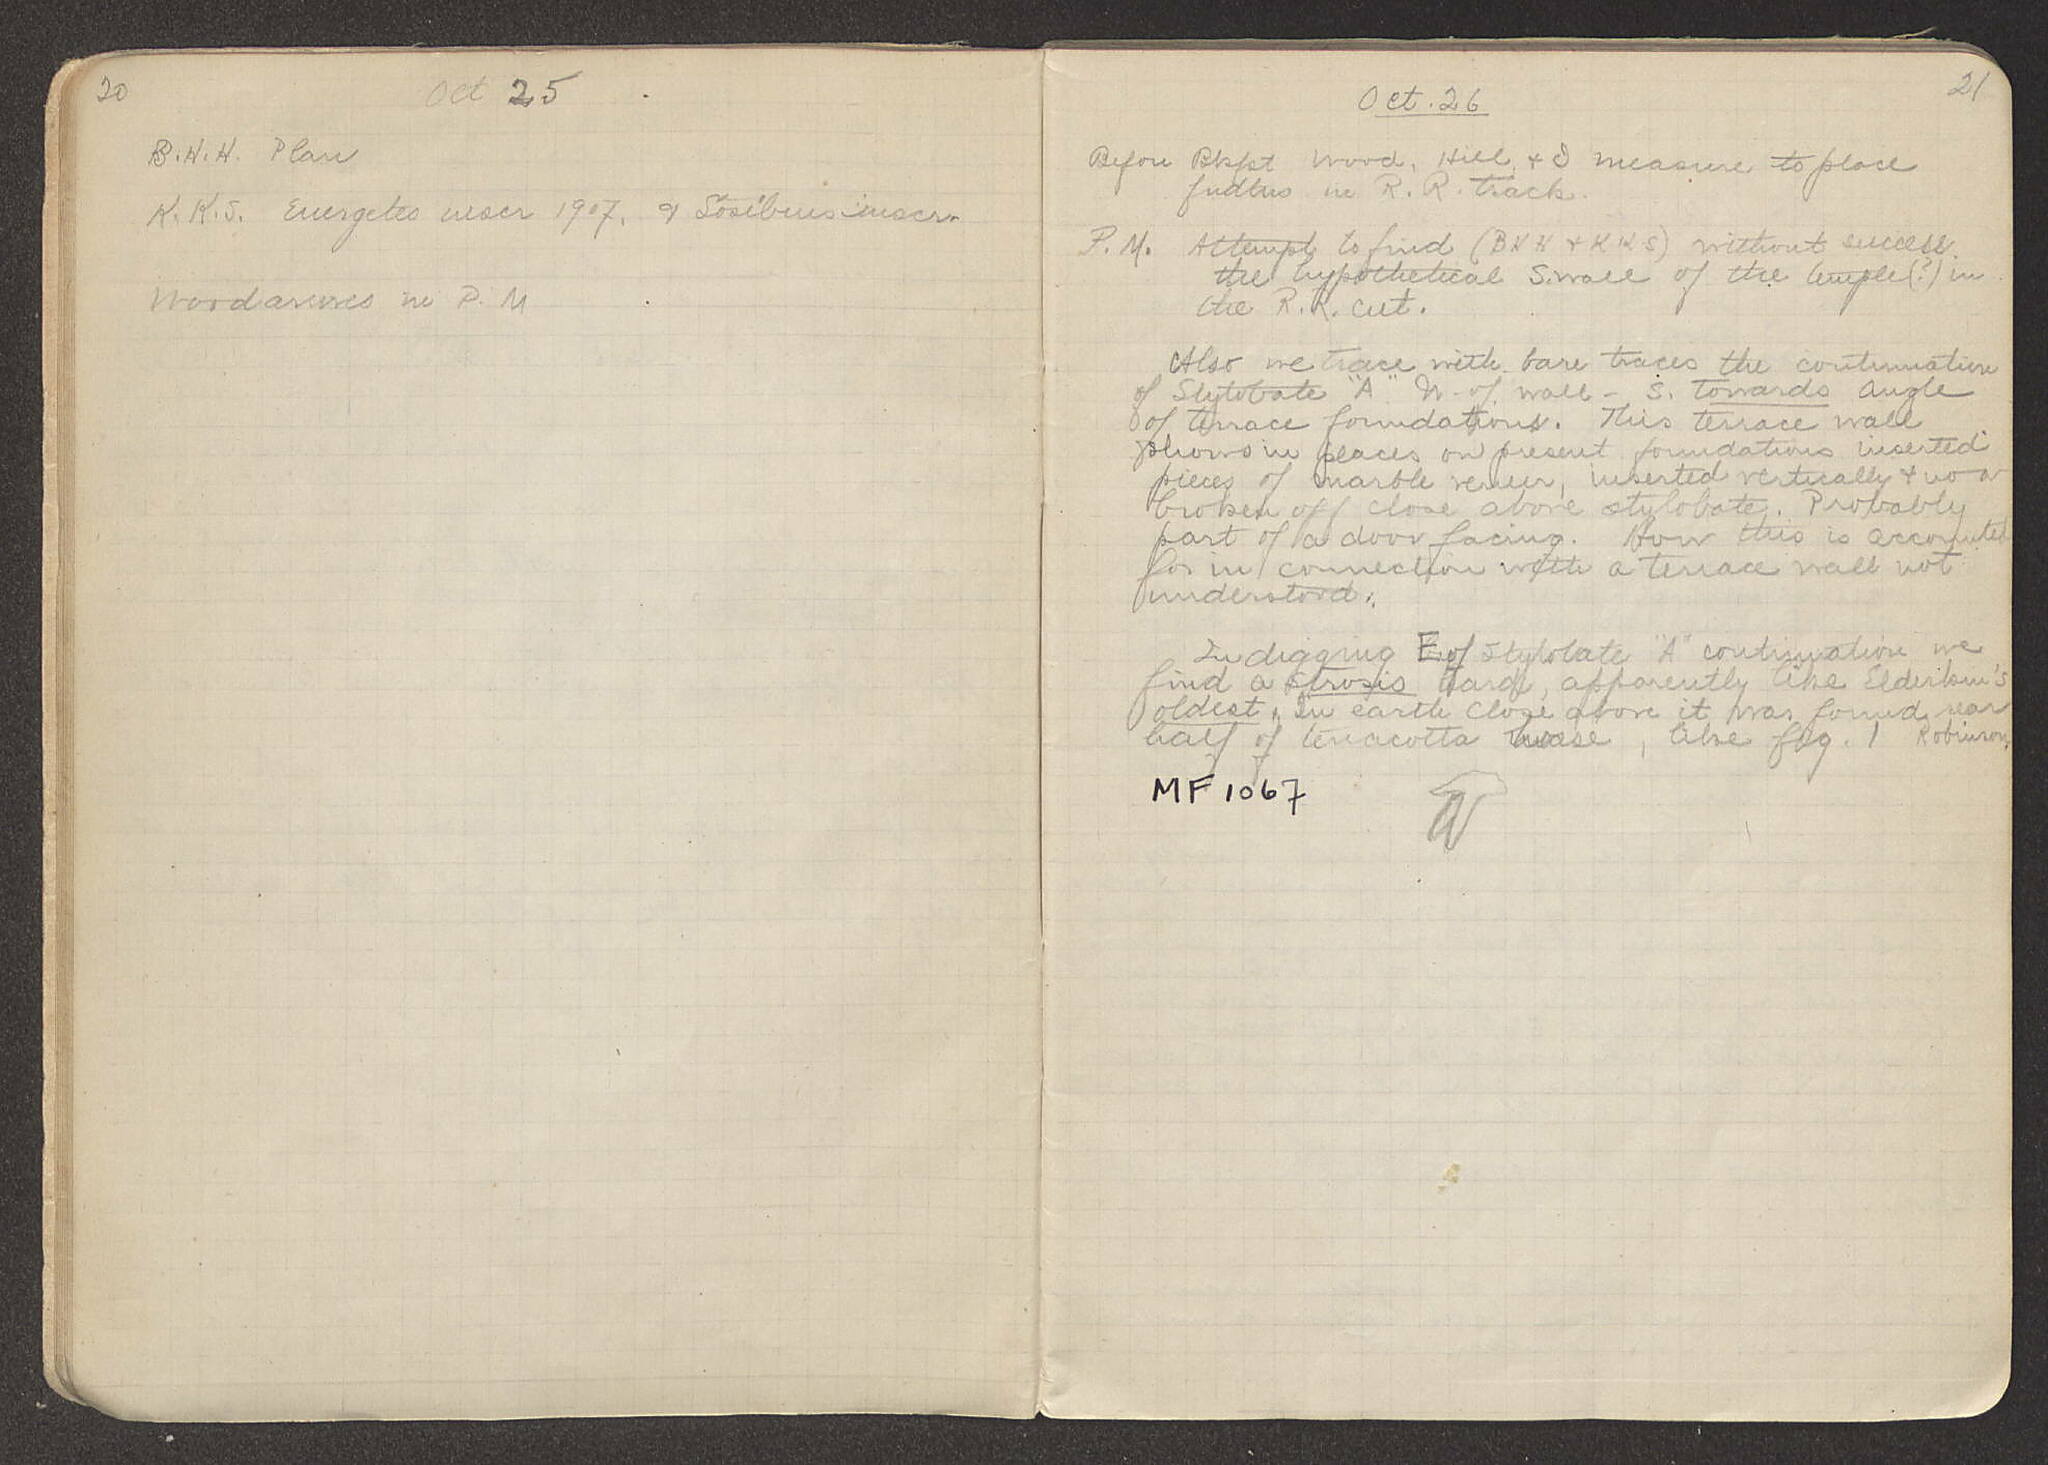 20
Oct 25
B.H.H. Plan
K.K.S. Euergetes inscr 1907, & Sosibius inscr.
Wood arrives in P. M
21
Oct. 26
Before Bkfst Wood, Hill, & I measure to place
in R. R. track.
P. M. Attempt to find (BHH + KKS) without success
the hypothetical S. wall of the temple (?) in
the R. R. cut.
Also we trace with bare traces the continuation
of Stylobate "A" N. of wall - S. towards angle
of terrace foundations. This terrace wall
shows in places on present foundations inserted
pieces of marble veneer, inserted vertically & now
broken off close above stylobate. Probably
part of a door facing. How this is accounted
for in connection with a terrace wall not
understood.
In digging E of Stylobate "A" continuation we
find a strosis hard, apparently like Elderkin's
oldest. In earth close above it was found rear
half of terracotta, like fig. 1 Robinson,
MF 1067